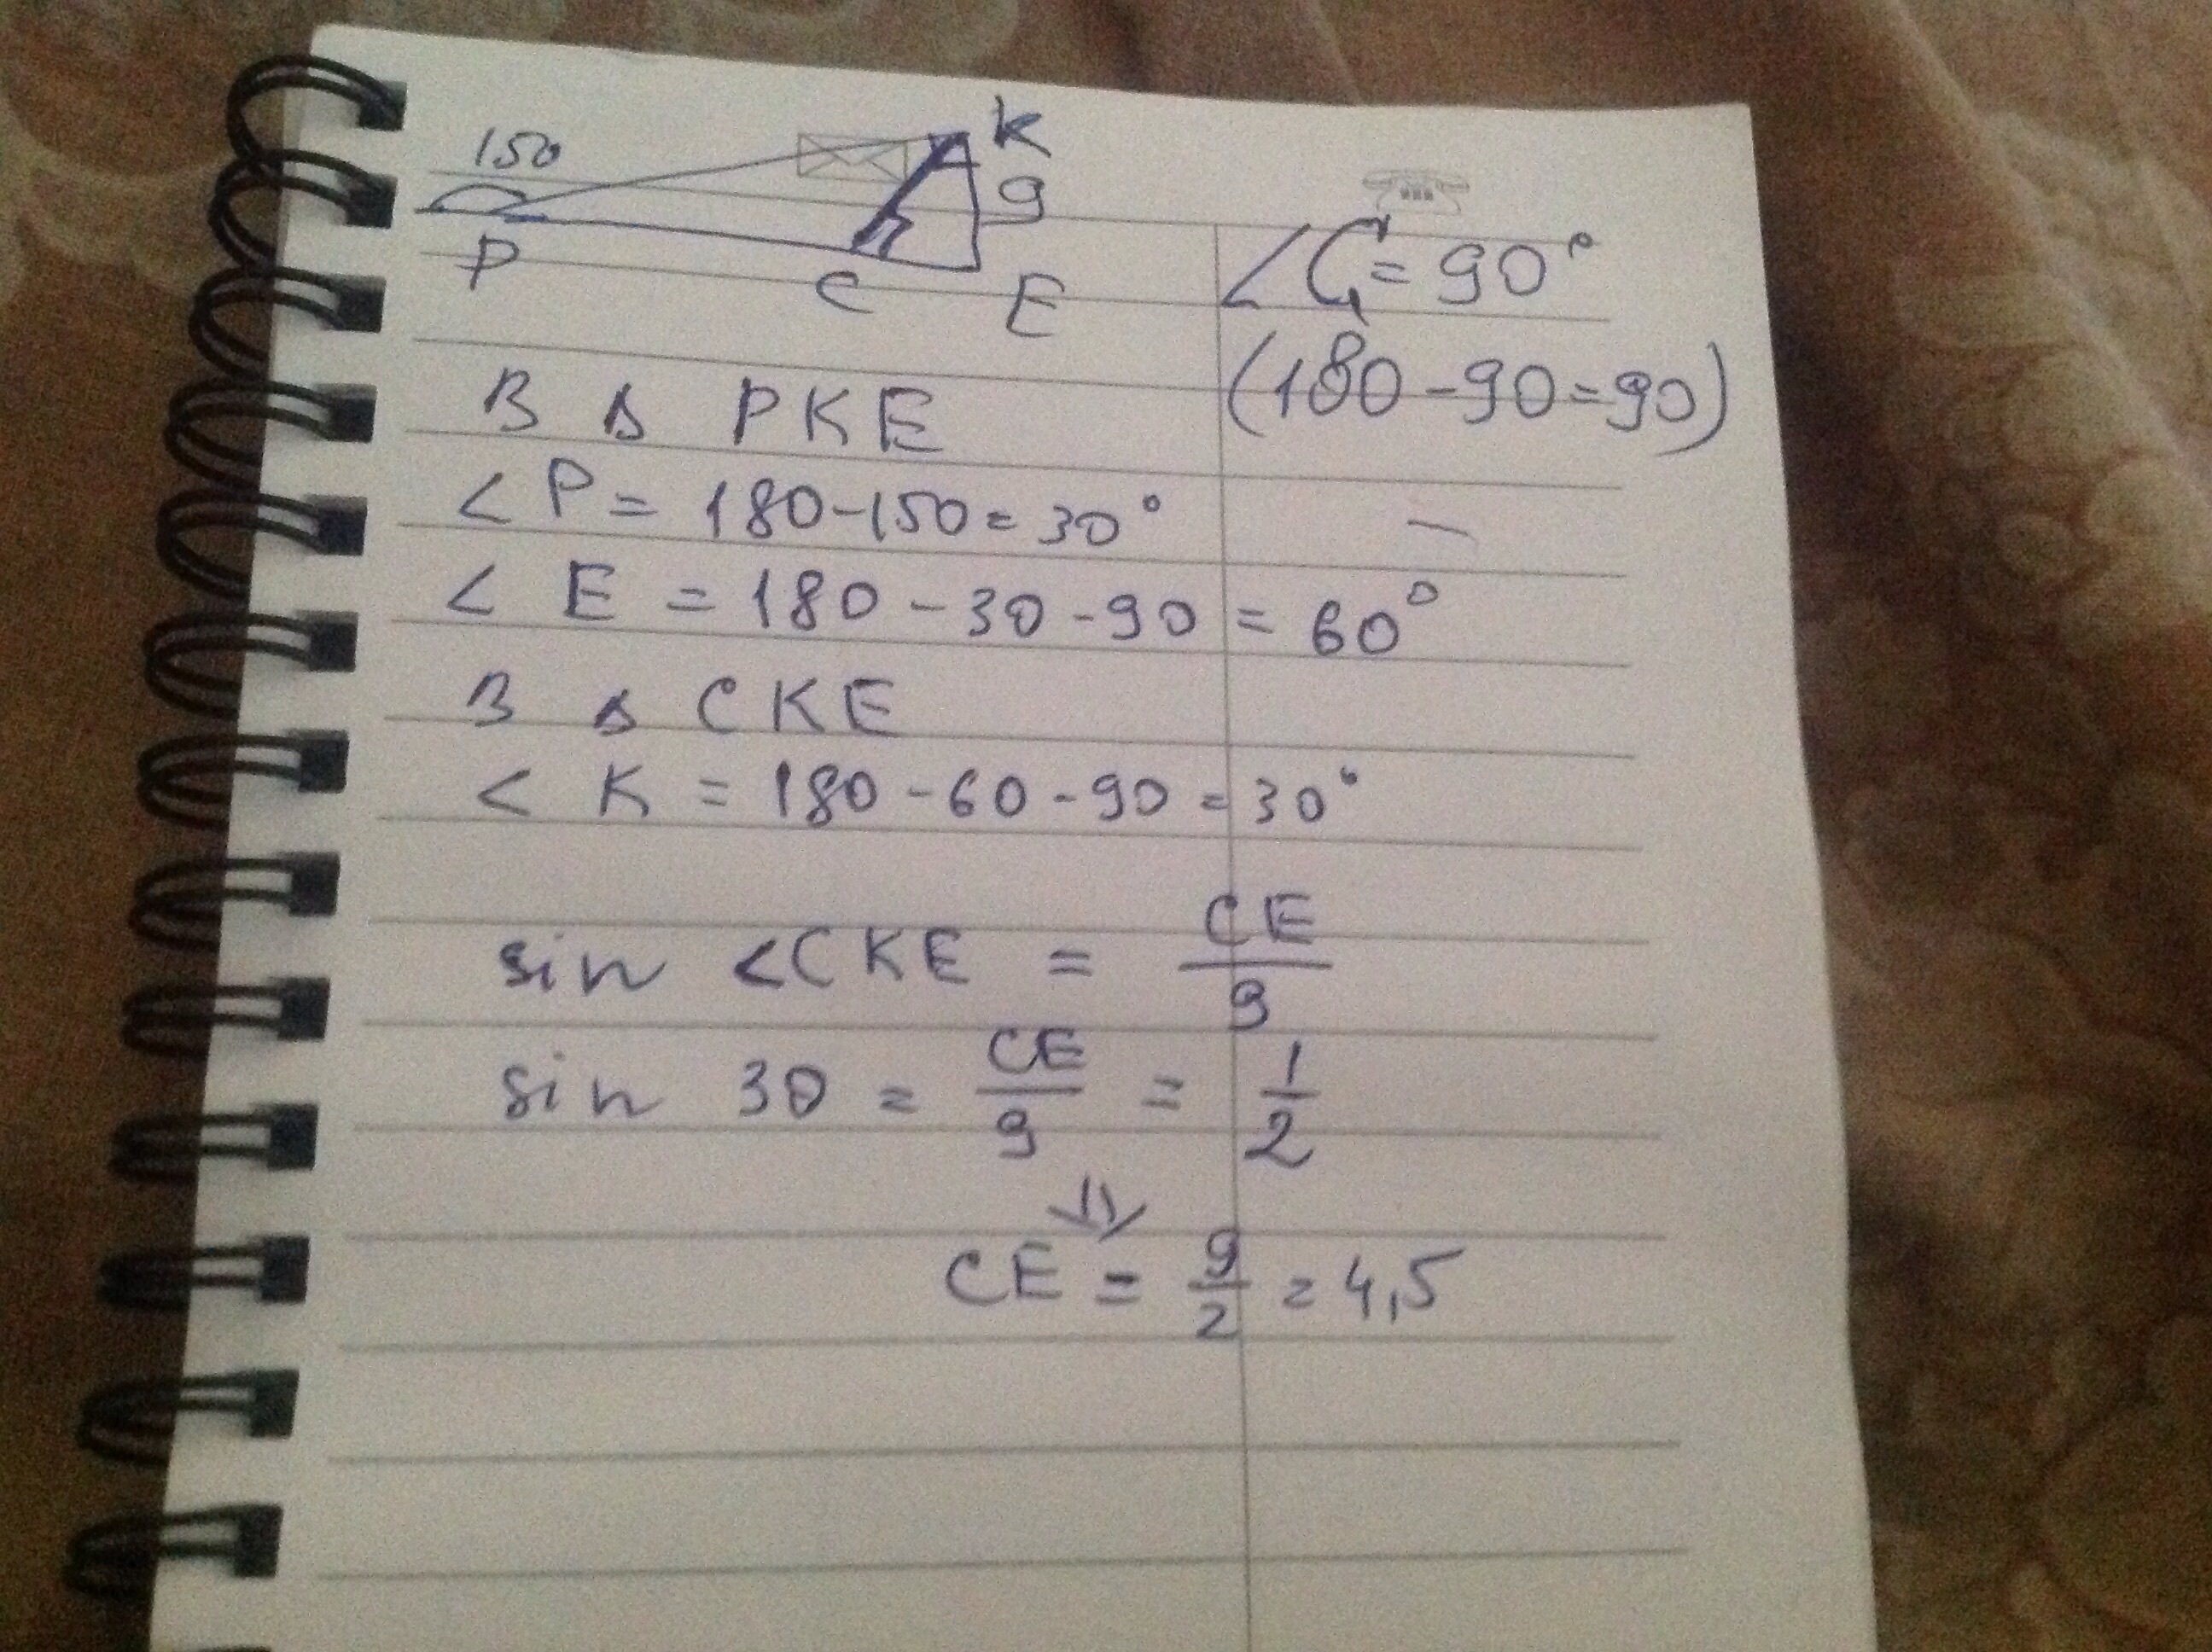 150
K
9
P
C
E
∠C₁ = 90°
(180-90=90)
В Δ PKE
< P = 180-150 = 30°
< E = 180 - 30 - 90 = 60°
В Δ CKE
< K = 180 - 60 - 90 = 30°
sin <CKE = CE/9
sin 30 = CE/9 = 1/2
⇓
CE = 9/2 = 4,5